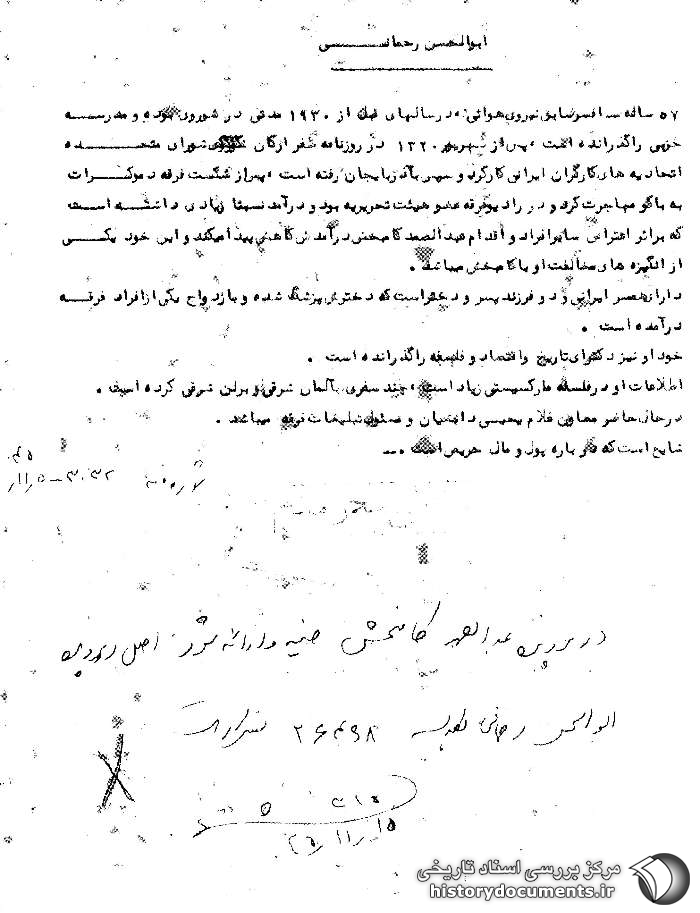 ابوالحسن رحمانی
۵۷ ساله افسر سابق نیروی هوائی، در سالهای قبل از ۱۹۳۰ مدتی در شوروی بوده و مدرسه
حزبی را گذرانده است، پس از شهریور ۱۳۲۰ در روزنامه ظفر ارگان شورای متحده
اتحادیه های کارگران ایرانی کار کرد و سپس بآذربایجان رفته است، پس از شکست فرقه دموکرات
به باکو مهاجرت کرد و در رادیو فرقه عضو هیئت تحریریه بود و درآمد نسبتا زیادی داشته است
که بر اثر اعتراض سایر افراد و اقدام عبدالصمد کامبخش درآمدش کاهش پیدا میکند و این خود یکی
از انگیزه های مخالفت او با کامبخش میباشد .
دارای همسر ایرانی و دو فرزند پسر و دختر است که دخترش پزشک شده و با زدواج یکی از افراد فرقه
درآمده است .
خود او نیز دکترای تاریخ و اقتصاد و فلسفه را گذرانده است .
اطلاعات او در فلسفه مارکسیستی زیاد است، چند سفری بآلمان شرقی و برلن شرقی کرده است .
در حال حاضر معاون غلام یحیی دانشیان و مسئول تبلیغات فرقه میباشد .
شایع است که در باره پول و مال حریص است .
در پرونده عبدالصمد کامبخش ضمیمه و ارائه شود اصل در پرونده
ابوالحسن رحمانی
مرکز بررسی اسناد تاریخی
historydocuments.ir